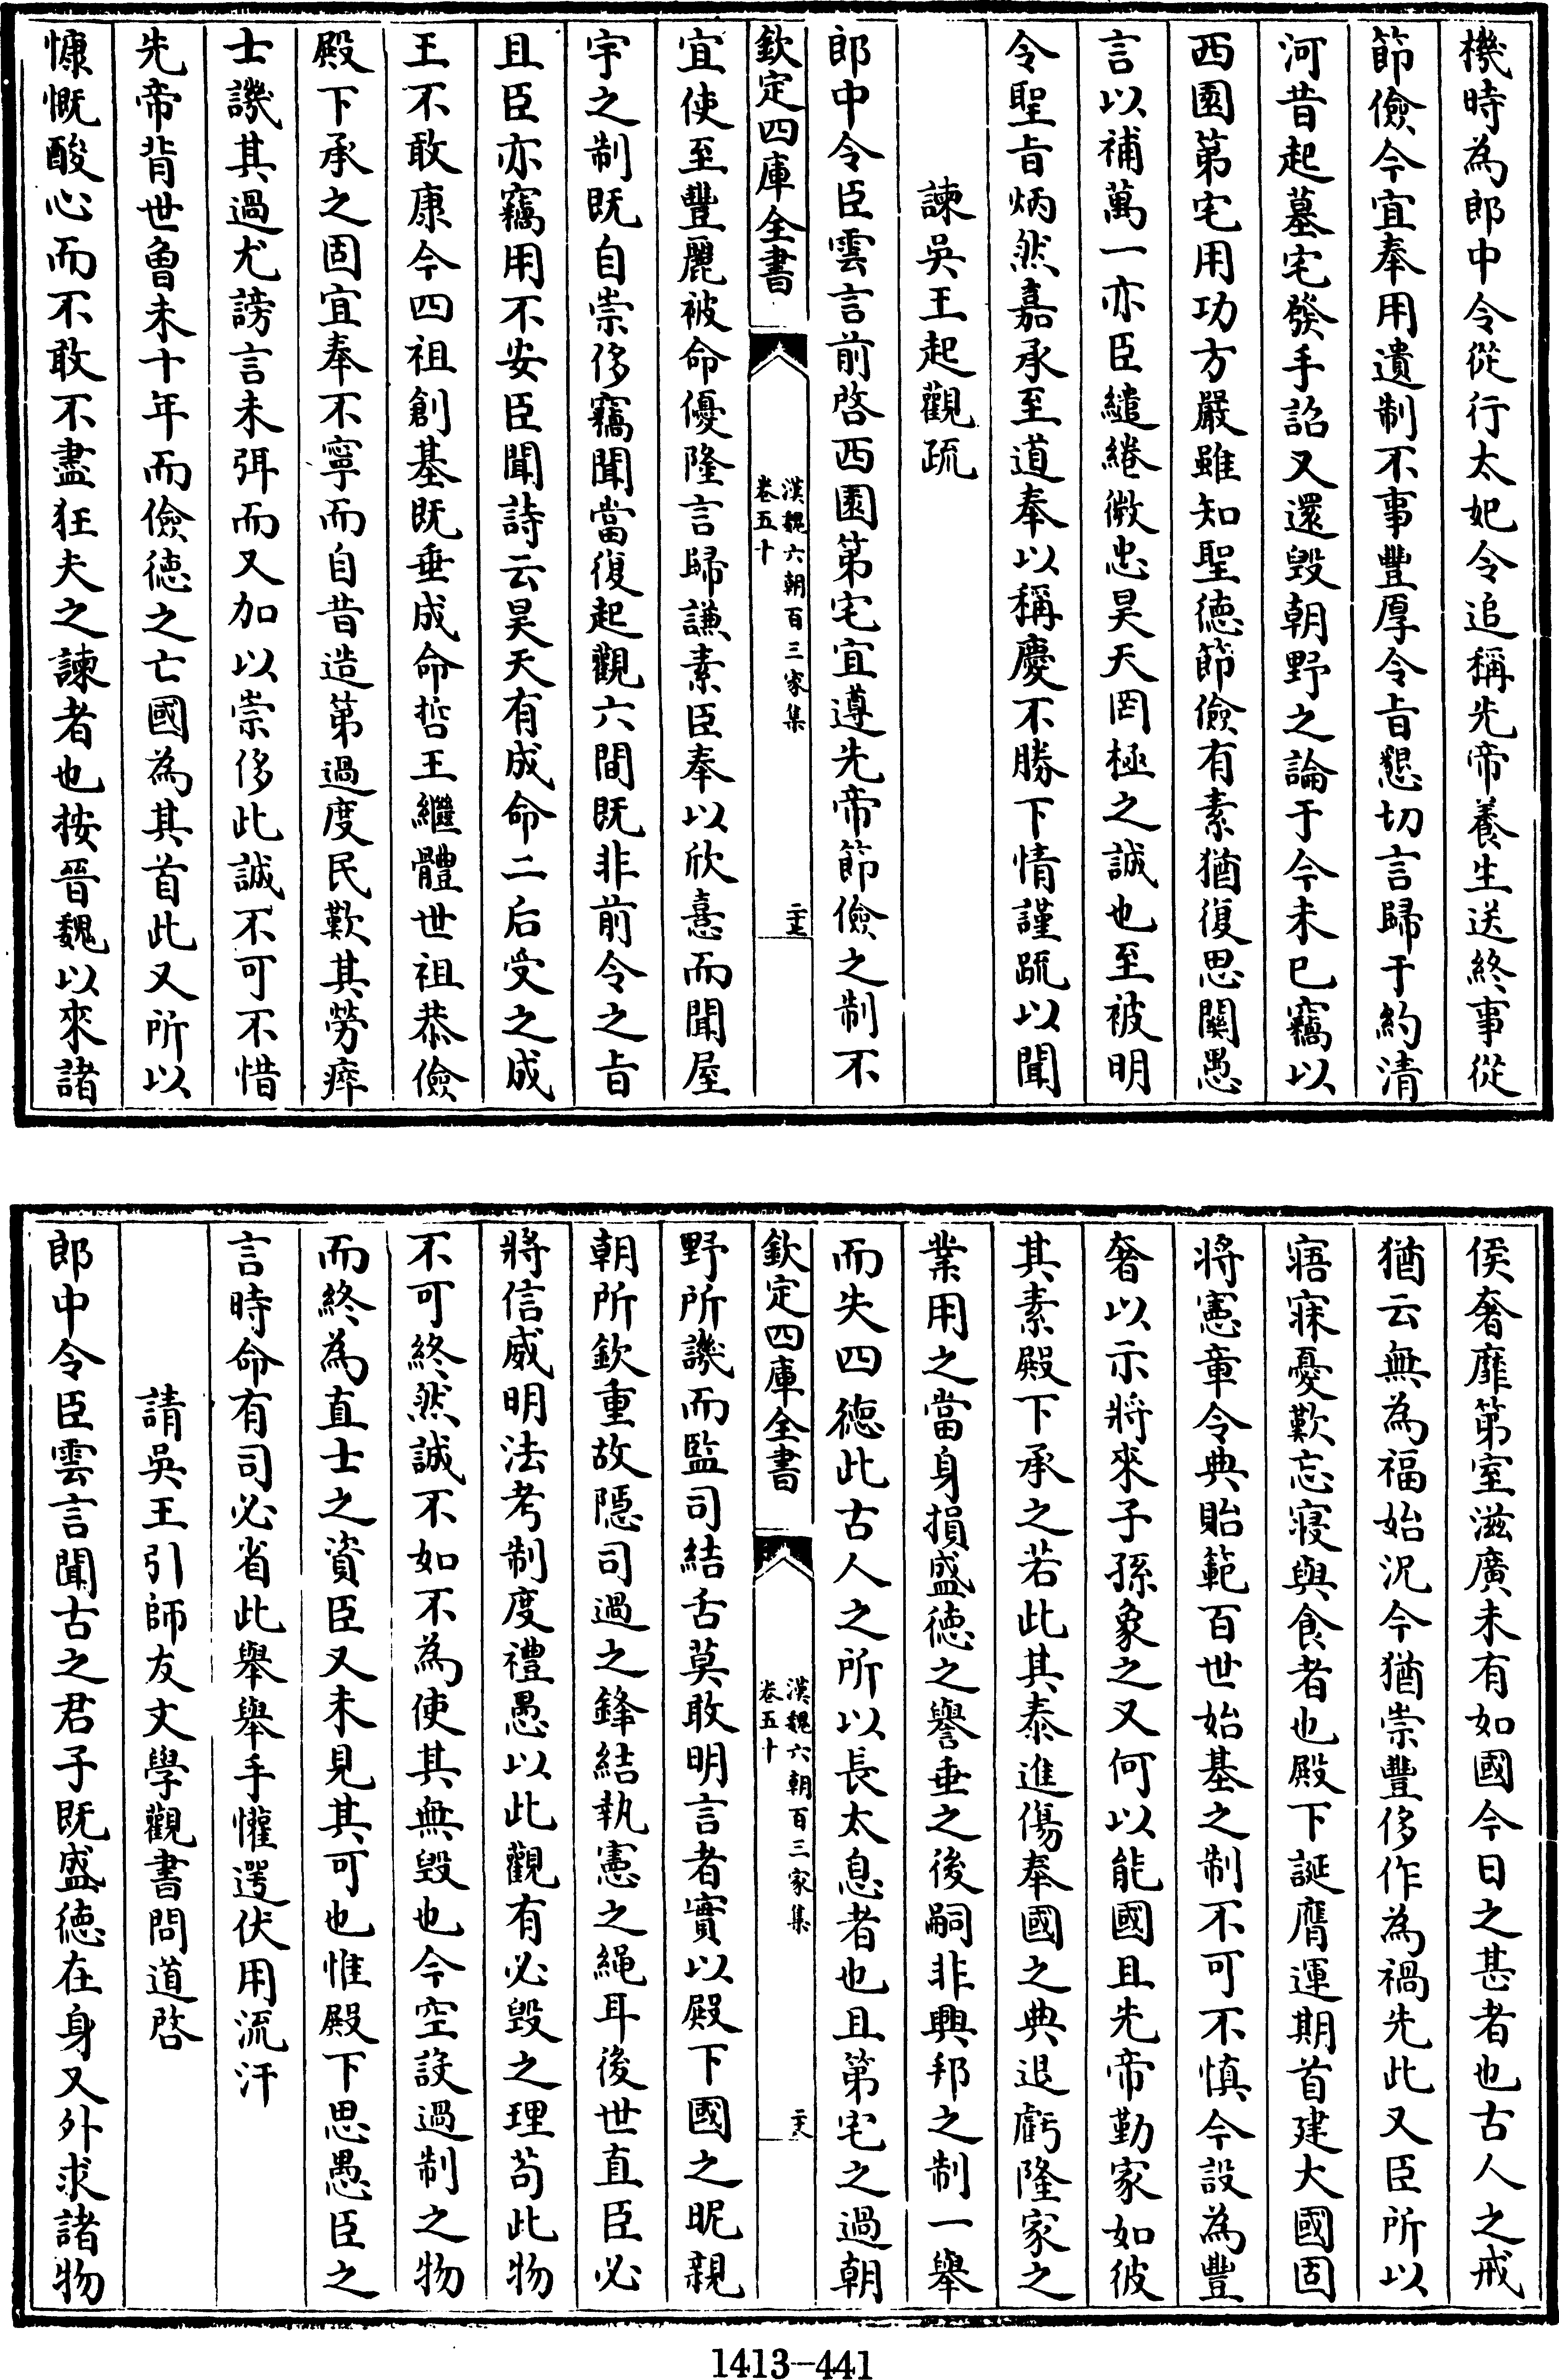 機時為郎中令從行太妃令追稱先帝養生送終事從
節儉今宜奉用遺制不事豐厚令㫖懇切言歸于約清
河昔起墓宅發手詔又還毁朝野之論于今未已竊以
西園第宅用功方嚴雖知聖徳節儉有素猶復思闗愚
言以補萬一亦臣繾綣微忠昊天罔極之誠也至被明
令聖㫖炳然嘉承至道奉以稱慶不勝下情謹疏以聞
諫吳王起觀疏
郎中令臣雲言前啓西園第宅宜遵先帝節儉之制不
欽定四庫全書
漢魏六朝百三家集
卷五十
二十五
宜使至豐麗被命優隆言歸謙素臣奉以欣憙而聞屋
宇之制既自崇侈竊聞當復起觀六間既非前令之㫖
且臣亦竊用不安臣聞詩云昊天有成命二后受之成
王不敢康今四祖創基既垂成命哲王繼體世祖恭儉
殿下承之固宜奉不寧而自昔造第過度民歎其勞瘁
士譏其過尤謗言未弭而又加以崇侈此誠不可不惜
先帝背世曽未十年而儉徳之亡國為其首此又所以
慷慨酸心而不敢不盡狂夫之諫者也按晉魏以來諸
侯奢靡第室滋廣未有如國今日之甚者也古人之戒
猶云無為福始況今猶崇豐侈作為禍先此又臣所以
寤寐憂歎忘寢與食者也殿下誕膺運期首建大國固
將憲章令典貽範百世始基之制不可不慎今設為豐
奢以示將來子孫象之又何以能國且先帝勤家如彼
其素殿下承之若此其泰進傷奉國之典退虧隆家之
業用之當身損盛徳之譽垂之後嗣非興邦之制一舉
而失四徳此古人之所以長太息者也且第宅之過朝
欽定四庫全書
漢魏六朝百三家集
卷五十
二十六
野所譏而監司結舌莫敢明言者實以殿下國之昵親
朝所欽重故隱司過之鋒結執憲之繩耳後世直臣必
將信威明法考制度禮愚以此觀有必毁之理苟此物
不可終然誠不如不為使其無毁也今空設過制之物
而終為直士之資臣又未見其可也惟殿下思愚臣之
言時命有司必省此舉舉手懽遌伏用流汗
請吳王引師友文學觀書問道啓
郎中令臣雲言聞古之君子既盛徳在身又外求諸物
1413-441